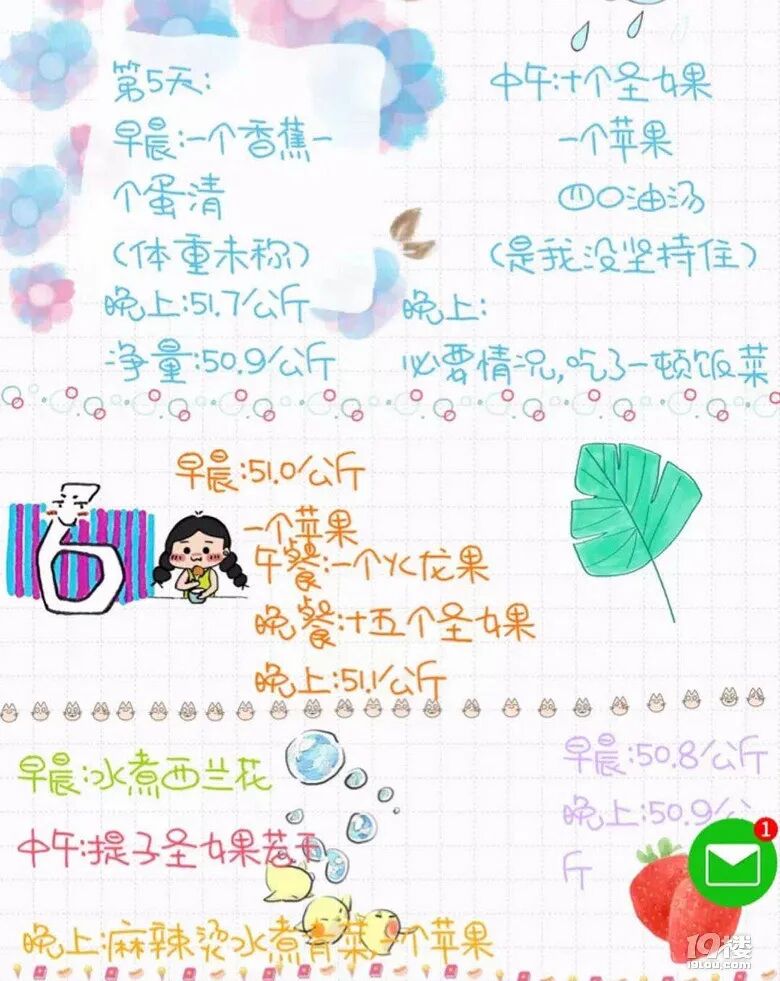 第5天:
早晨:一个香蕉一
个蛋清
(体重未称)
晚上:51.7公斤
净量:50.9公斤
中午:十个圣女果
一个苹果
四口油汤
(是我没坚持住)
晚上:
必要情况,吃了一顿饭菜
6
早晨:51.0公斤
一个苹果
午餐:一个火龙果
晚餐:十五个圣女果
晚上:51.1公斤
早晨:水煮西兰花
中午:提子圣女果若干
晚上:麻辣烫水煮青菜一个苹果
早晨:50.8公斤
晚上:50.9公
斤
1
19楼
19lou.com